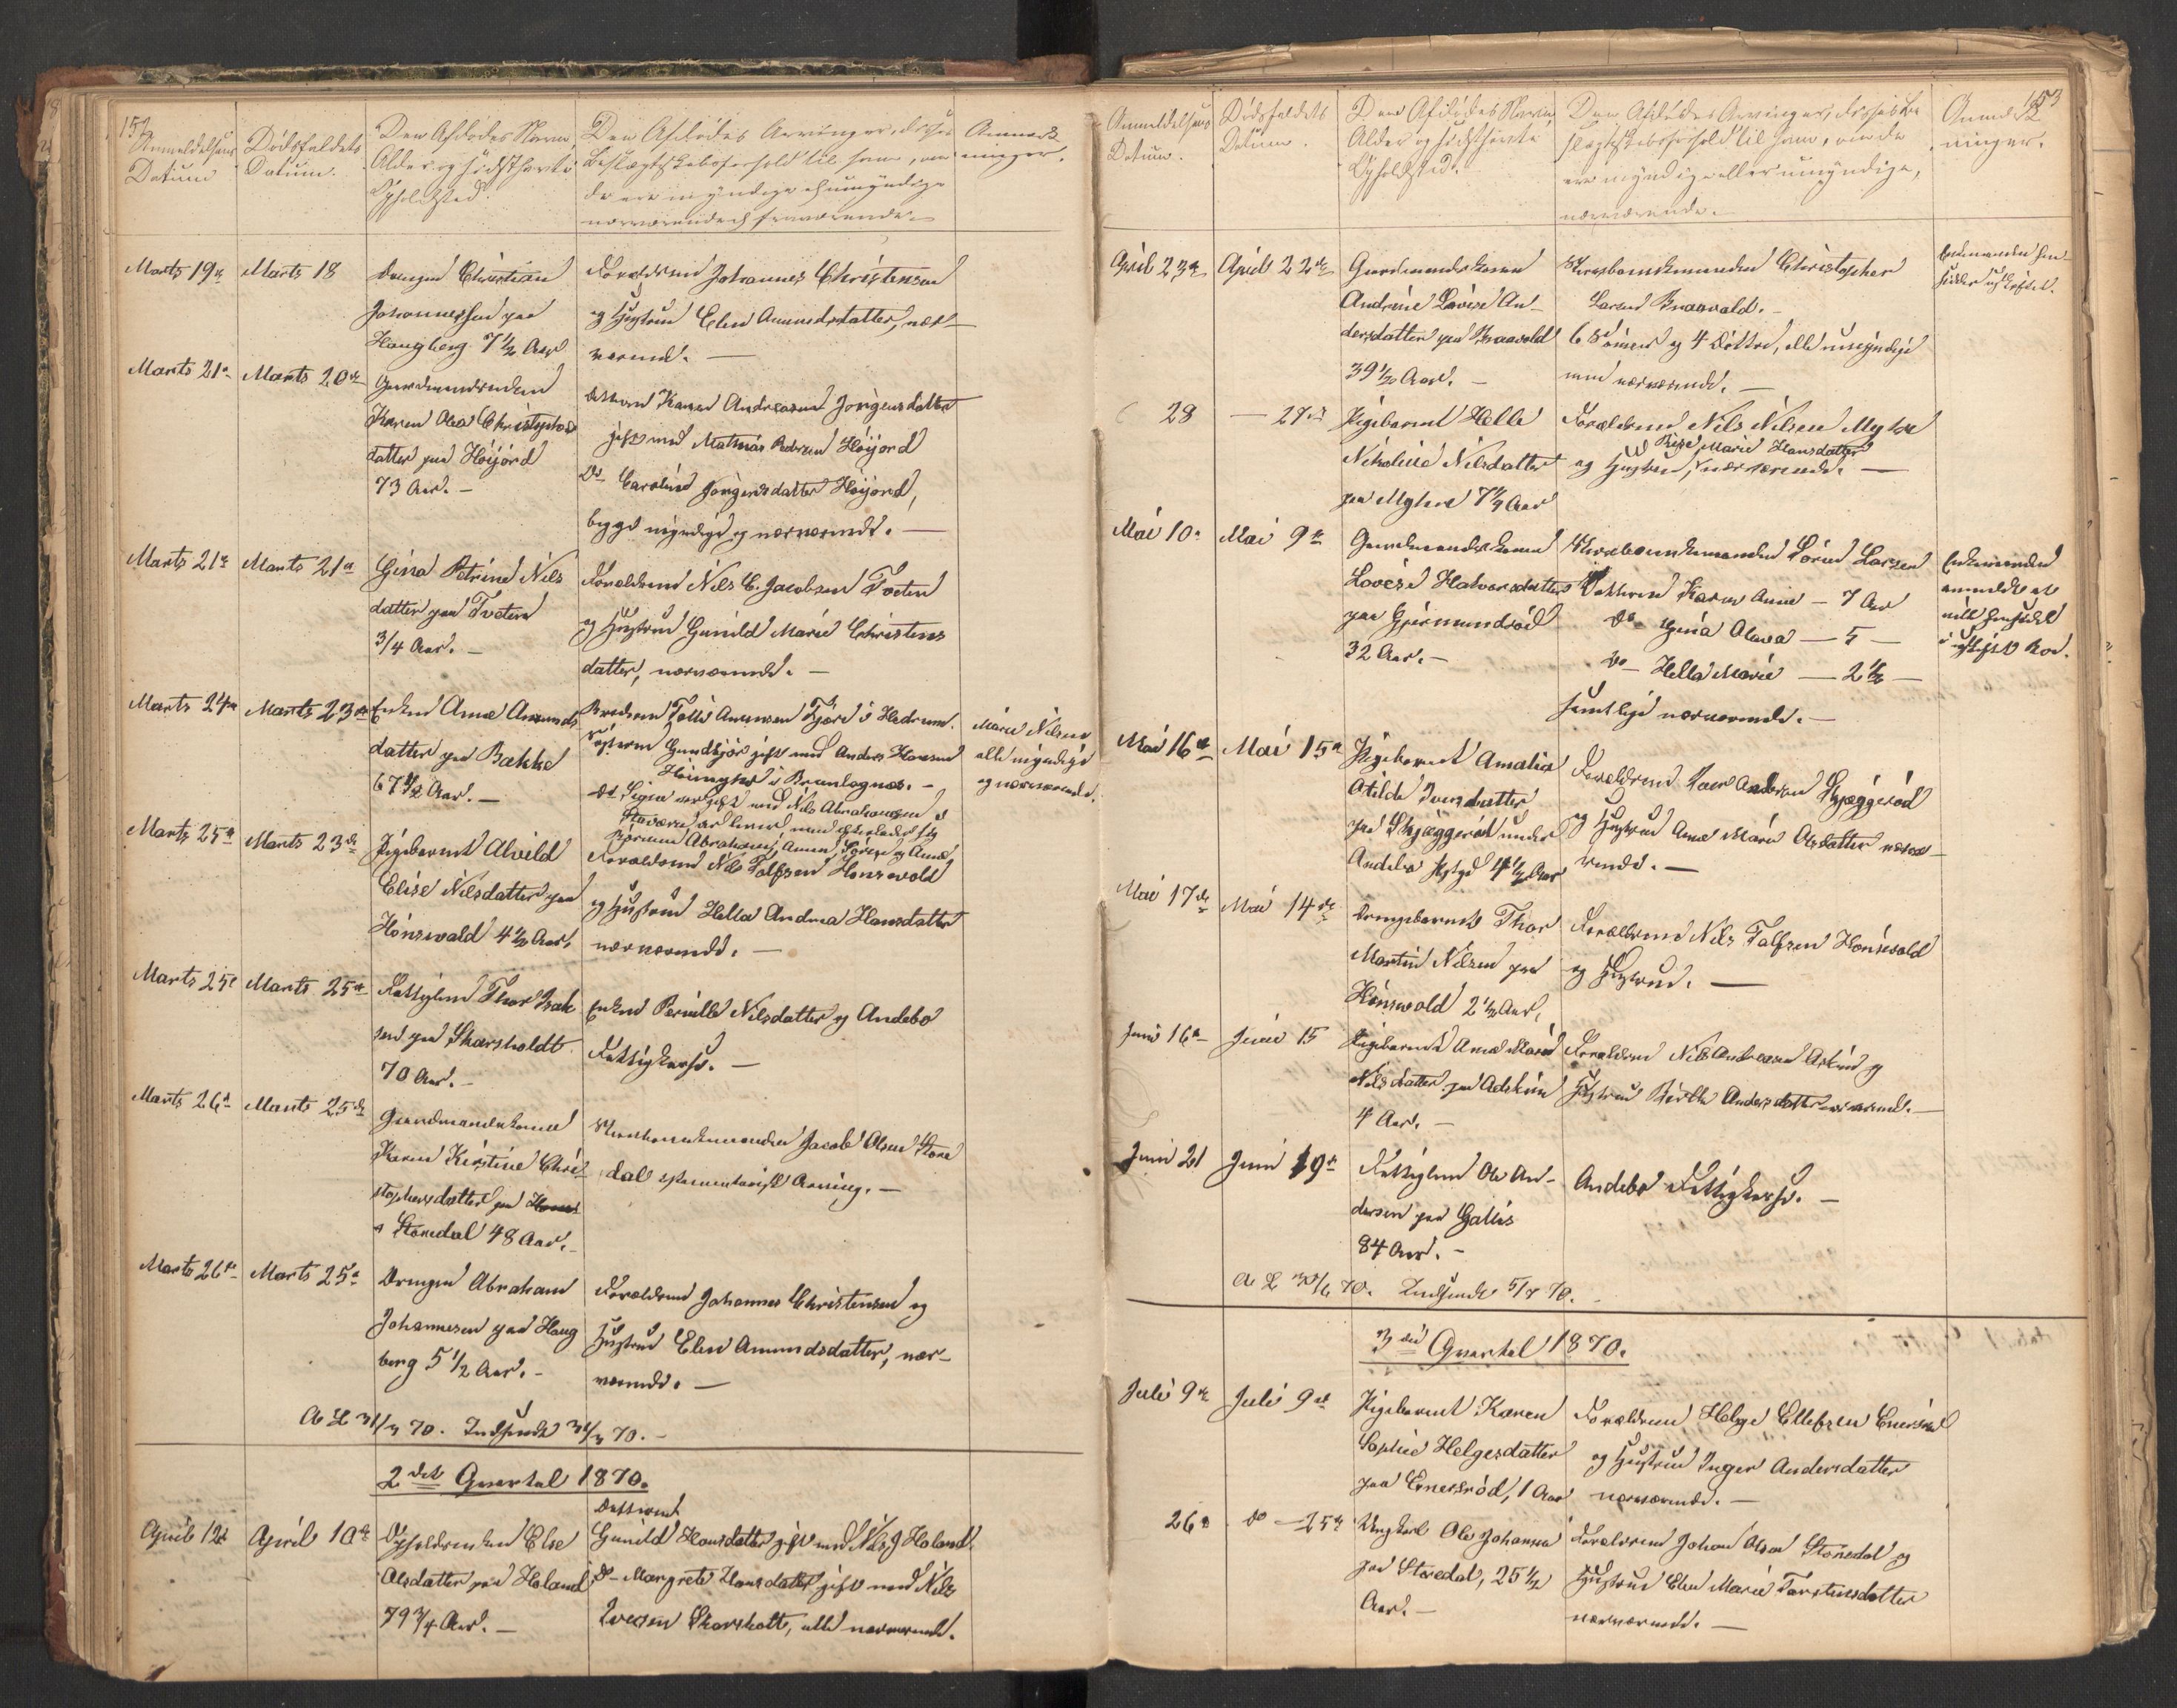 152
Anmeldelsens Datum
Dødsfaldets Datum.
Den Afdødes Navn,
Alder og sidst havte
Opholdsted.
Den Afdødes Arvinger, disses
Beslægtskabsforhold til ham, om
de ere myndige eller umyndige
nærværende eller fraværende.
Anmærkninger.
Marts 19de
Marts 18
Drengen Christian
Johannessen paa
Haugberg 7 1/2 Aar
Forældrene Johannes Christensen
og Hustrue Elen Amundsdatter, nær-
værende. —
Marts 21de
Marts 20de
Gaardmandsenken
Karen Olea Christophers
datter paa Høijord
73 Aar. —
Datteren Karen Andrea Jørgensdatter
gift med Mathias Pedersen Høijord
Do Caroline Jørgensdatter Høijord,
begge myndige og nærværende. —
Marts 21de
Marts 21de
Gina Petrine Nils
datter paa Tveten
3/4 Aar. —
Forældrene Nils C. Jacobsen Tveten
og Hustrue Gunild Marie Christens
datter, nærværende. —
Marts 24de
Marts 23de
Enken Anne Amunds
datter paa Bakke
67 1/2 Aar. —
Broderen Tollef Amundsen Fjære i Hedrum.
Søsteren Gundbjør gift med Anders Hansen
i Brunlagnæs. —
do Signe var gift med Nils Abrahamsen
Børnene Abraham, Anne, Søren og Anne
Marie Nilsen
alle myndige
og nærværende.
Marts 25de
Marts 23de
Pigebarnet Alvild
Elise Nilsdatter paa
Hønsvald 4 1/2 Aar.
Forældrene Nils Tolfsen Hønsvold
og Hustrue Hella Andrea Hansdatter
nærværende. —
Marts 25de
Marts 25de
Fattiglem Thor Isak
sen paa Skarsholdt
70 Aar. —
Enken Pernille Nilsdatter og Andebo
Fattigkasse. —
Marts 26de
Marts 25de
Gaardmandskone
Karen Kirstine Chri-
stophersdatter paa
Storedal 48 Aar. —
Jacob Olsen Store
dal testamentarisk Arving. —
Marts 26de
Marts 25de
Drengen Abraham
Johannesen paa Haug
berg 5 1/2 Aar. —
Forældrene Johannes Christensen og
Hustrue Elen Amundsdatter, nær-
værende. —
31/3 70. Indsendt 31/3 70. —
2det Qvartal 1870.
April 12te
April 10de
Else
Olsdatter paa Holand
79 3/4 Aar. —
Datteren
Gunild Hansdatter gift med Nils J Holand.
Do Margrete Hansdatter gift med Nils
Iversen Skarsholt, alle nærværende.
153
Anmeldelsens
Datum.
Dødsfaldets
Datum.
Den Afdødes Navn,
Alder og sidst havte
Opholdsted.
Den Afdødes Arvinger, disses Be
slægtskabsforhold til ham, om de
ere myndige eller umyndige,
nærværende. —
Anmærk
ninger.
April 23de
April 22de
Gaardmandskonen
Andrine Lovise An-
dersdatter paa Braavold
39 1/2 Aar. —
Christopher
Larsen Braavald. —
6 Sønner og 4 Døttre, alle umyndige
men nærværende. —
Enkemanden hen-
sidder uskiftet.
28
— 27de
Pigebarnet Helle
Nikoline Nilsdatter
paa Myhre 7 1/4 Aar
Forældrene Nils Nilsen Myhre
Marie Hansdatter
og Hustrue, nærværende. —
Mai 10de
Mai 9de
Gaardmandskonen
Lovise Halvorsdatter
paa Gjermundrød
32 Aar. —
Sørene Larsen
Datteren Karen Anne — 7 Aar
do Gina Olava — 5 —
do Hella Marie — 2 1/2 —
samtlige nærværende. —
Enkemanden
anmeldte at
ville hensidde
i uskiftet Bo.
Mai 16de
Mai 15de
Pigebarnet Amalia
Otilde Iversdatter
paa Skjæggerød under
Andebo 4 1/2 Aar
Forældrene Iver Andersen Skjæggerød
og Hustrue Anne Marie Olsdatter nærvæ-
rende. —
Mai 17de
Mai 14de
Drengebarnet Thor
Martin Nilsen paa
Hønsvold 2 1/2 Aar.
Forældrene Nils Tolfsen Hønsvold
og Hustrue. —
Juni 16de
Juni 15
Pigebarnet Anne Marie
Nilsdatter paa Adskim
4 Aar. —
Forældrene Nils Andreasen Askim og
Hustrue Birthe Andersdatter nærværende. —
Juni 21
Juni 19de
Fattiglem Ole An-
dersen paa Gallis
84 Aar. —
Andebo Fattigkasse. —
30/6 70. Indsendt 5/7 70. —
3die Qvartal 1870.
Juli 9de
Juli 9de
Pigebarnet Karen
Sophie Helgesdatter
paa Enersrød, 1 Aar
Forældrene Helge Ellefsen Enersrød
og Hustrue Inger Andersdatter
nærværende. —
26de
do — 25de
Ungkarl Ole Johannsen
paa Storedal, 25 1/2
Aar. —
Forældrene Johan Olsen Storedal og
Hustrue Elen Marie Torstensdatter
nærværende. —